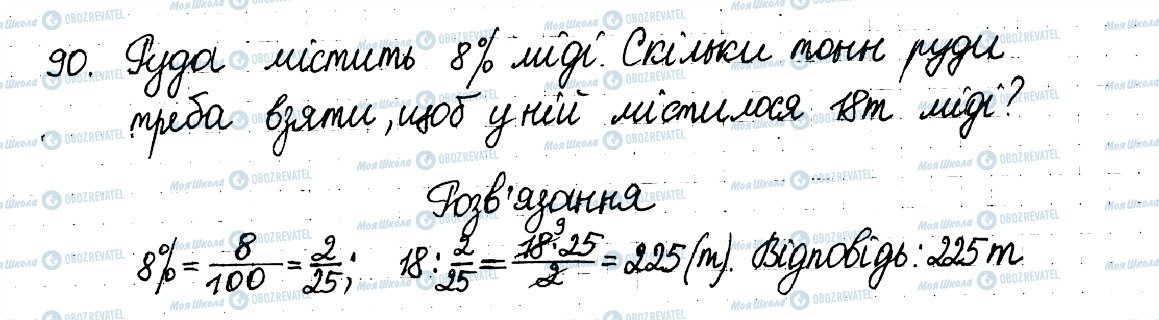 90. Руда містить 8% міді. Скільки тонн руди
треба взяти, щоб у ній містилося 18т міді?
Розв'язання
8% = 8/100 = 2/25; 18 : 2/25 = 18⁹·25/2 = 225 (т). Відповідь: 225 т